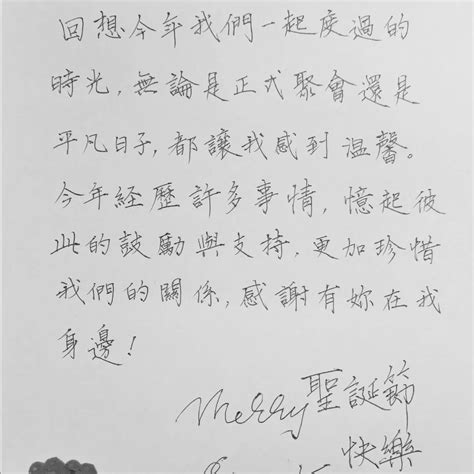 回想今年我們一起度過的
時光，無論是正式聚會還是
平凡日子，都讓我感到温馨。
今年經歷許多事情，憶起彼
此的鼓勵與支持，更加珍惜
我們的關係，感謝有妳在我
身邊！
Merry聖誕節
快樂